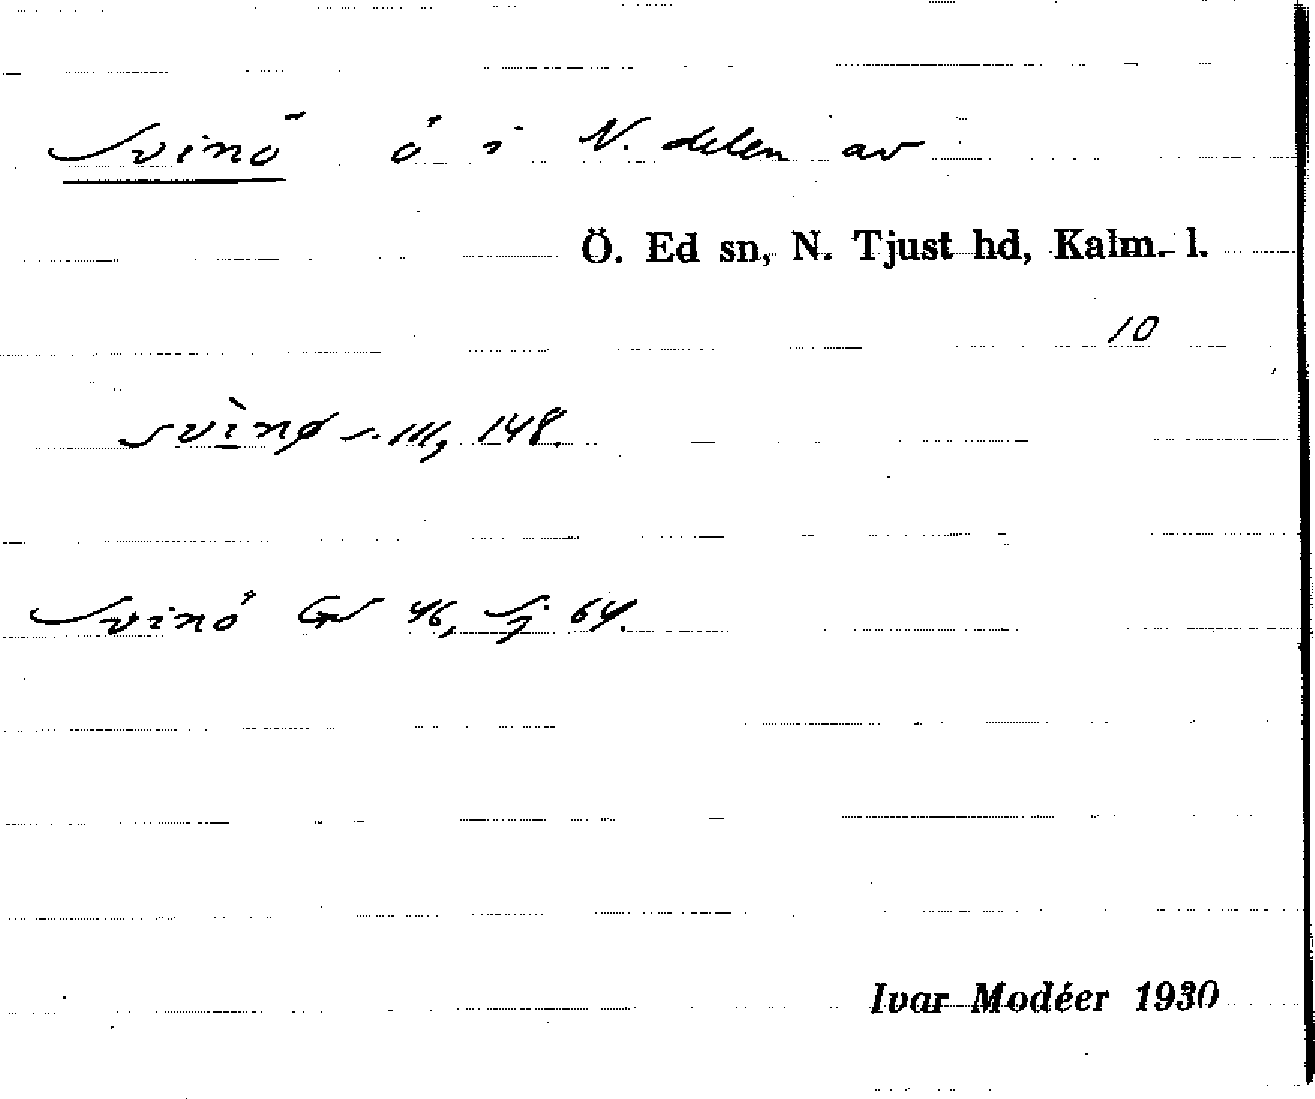 Svinö ö i N. delen av
Ö. Ed sn, N. Tjust hd, Kalm. l.
10
svìnø s. III, 148.
Svinö GV 46, Sj 64.
Ivar Modéer 1930